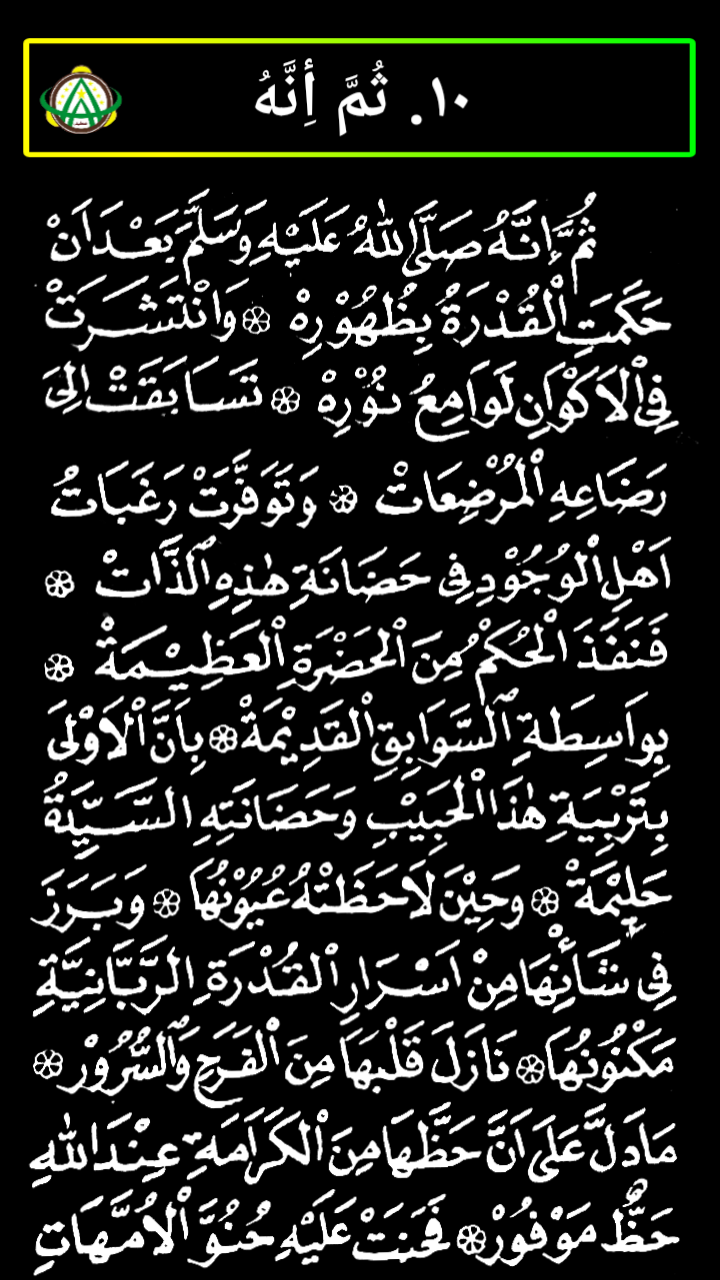 ١٠. ثُمَّ أِنَّهُ
ثُمَّ إِنَّهُ صَلَّى اللهُ عَلَيْهِ وَسَلَّمَ بَعْدَ اَنْ
حَكَمَتِ الْقُدْرَةُ بِظُهُوْرِهْ ۞ وَانْتَشَرَتْ
فِى الْاَكْوَانِ لَوَامِعُ نُوْرِهْ ۞ تَسَابَقَتْ اِلَى
رَضَاعِهِ الْمُرْضِعَاتْ ۞ وَتَوَفَّرَتْ رَغَبَاتُ
اَهْلِ الْوُجُوْدِ فِى حَضَانَةِ هٰذِهِ الذَّاتْ ۞
فَنَفَذَ الْحُكْمُ مِنَ الْحَضْرَةِ الْعَظِيْمَةْ ۞
بِوَاسِطَةِ السَّوَابِقِ الْقَدِيْمَةْ ۞ بِاَنَّ الْاَوْلَى
بِتَرْبِيَةِ هٰذَا الْحَبِيْبِ وَحَضَانَتِهِ السَّيِّدَةُ
حَلِيْمَةْ ۞ وَحِيْنَ لَاحَظَتْهُ عُيُوْنُهَا ۞ وَبَرَزَ
فِى شَأْنِهَا مِنْ اَسْرَارِ الْقُدْرَةِ الرَّبَّانِيَّةِ
مَكْنُوْنُهَا ۞ نَازَلَ قَلْبَهَا مِنَ الْفَرَحِ وَالسُّرُوْرِ ۞
مَادَلَّ عَلَى اَنَّ حَظَّهَا مِنَ الْكَرَامَةِ عِنْدَ اللهِ
حَظٌّ مَوْفُوْرْ ۞ فَحَنَتْ عَلَيْهِ حُنُوَّ الْاُمَّهَاتِ